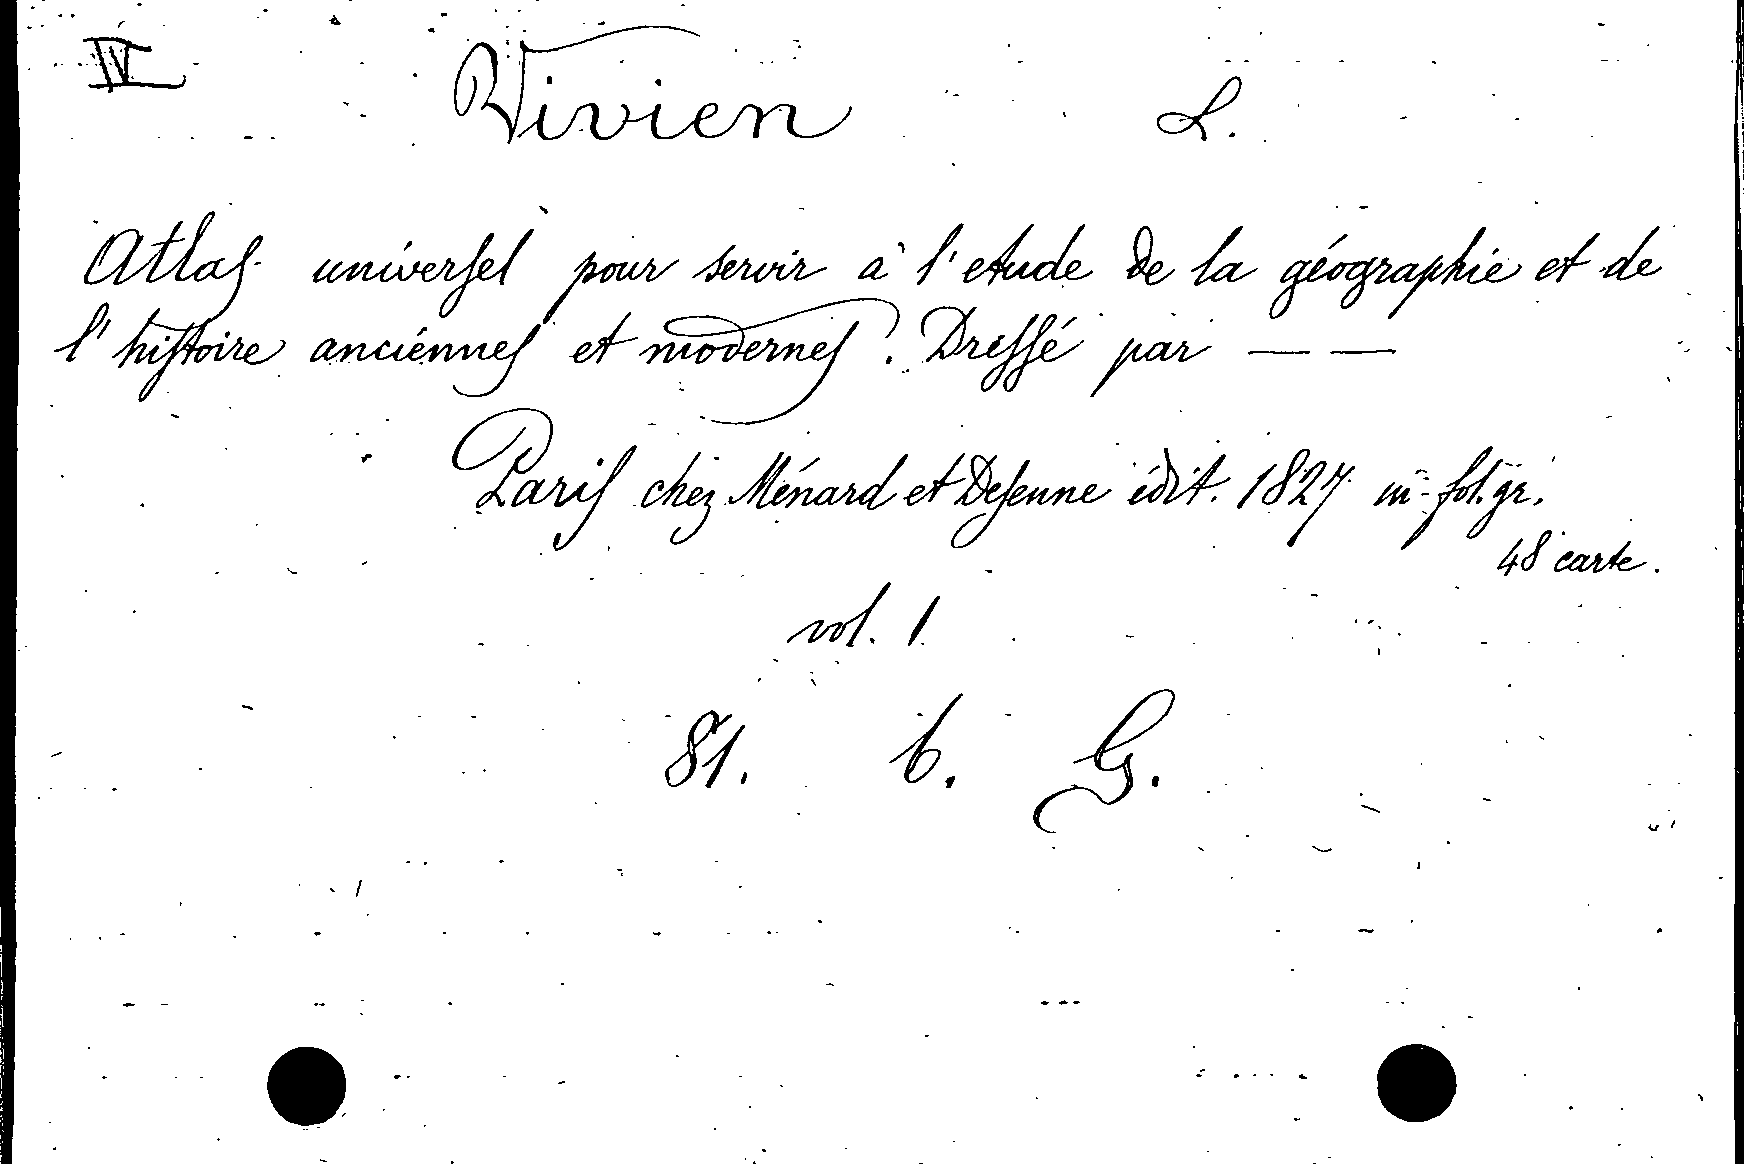 IV Vivien L.
Atlas universel pour servir à l'etude de la géographie et de
l'histoire anciénnes et modernes. Dressé par — —
Paris chez Ménard et Desenne édit. 1827 in-fol. gr.
48 carte.
vol. 1
81. b. G.